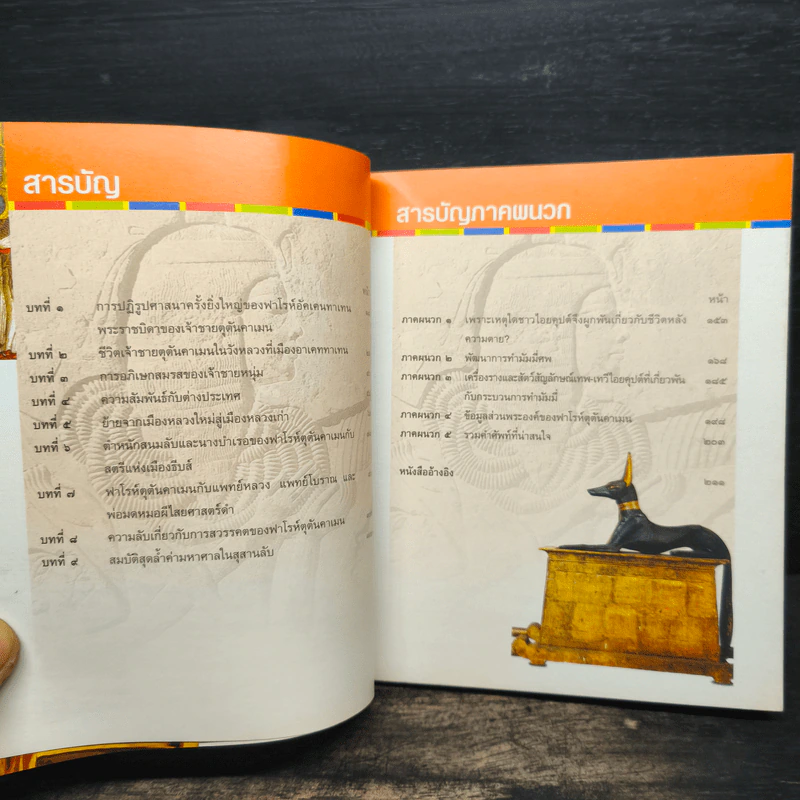 สารบัญ
บทที่ ๑ การปฏิรูปศาสนาครั้งยิ่งใหญ่ของฟาโรห์อัคเคนทาเทน
พระราชบิดาของเจ้าชายตุตันคาเมน
บทที่ ๒ ชีวิตเจ้าชายตุตันคาเมนในวังหลวงที่เมืองอาเคททาเทน
บทที่ ๓ การอภิเษกสมรสของเจ้าชายหนุ่ม
บทที่ ๔ ความสัมพันธ์กับต่างประเทศ
บทที่ ๕ ย้ายจากเมืองหลวงใหม่สู่เมืองหลวงเก่า
บทที่ ๖ ตำหนักสนมลับและนางบำเรอของฟาโรห์ตุตันคาเมนกับ
สตรีแห่งเมืองธีบส์
บทที่ ๗ ฟาโรห์ตุตันคาเมนกับแพทย์หลวง แพทย์โบราณ และ
พ่อมดหมอผีไสยศาสตร์ดำ
บทที่ ๘ ความลับเกี่ยวกับการสวรรคตของฟาโรห์ตุตันคาเมน
บทที่ ๙ สมบัติสุดล้ำค่ามหาศาลในสุสานลับ
สารบัญภาคผนวก
หน้า
ภาคผนวก ๑ เพราะเหตุใดชาวไอยคุปต์จึงผูกพันเกี่ยวกับชีวิตหลัง ๑๕๓
ความตาย?
ภาคผนวก ๒ พัฒนาการทำมัมมี่ศพ ๑๖๘
ภาคผนวก ๓ เครื่องรางและสัตว์สัญลักษณ์เทพ-เทวีไอยคุปต์ที่เกี่ยวพัน ๑๘๕
กับกระบวนการทำมัมมี่
ภาคผนวก ๔ ข้อมูลส่วนพระองค์ของฟาโรห์ตุตันคาเมน ๑๙๘
ภาคผนวก ๕ รวมคำศัพท์ที่น่าสนใจ ๒๐๓
หนังสืออ้างอิง ๒๑๑